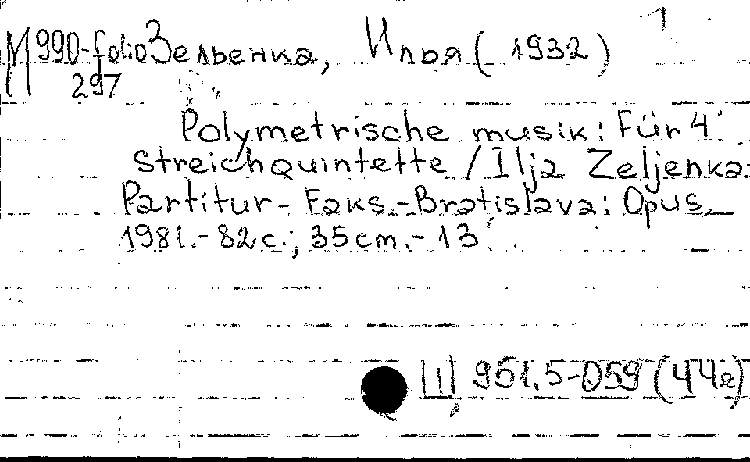 M 990-folio Зельенка, Илья ( 1932 )
297
Polymetrische musik: Für 4
Streichquintette / Ilja Zeljenka.
Partitur - Faks. - Bratislava: Opus
1981. - 82 c.; 35 cm. - 13
951.5-059 (44г)